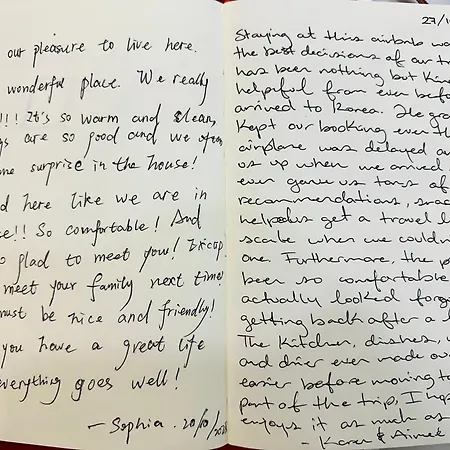 our pleasure to live here.
wonderful place. We really
!!! It's so warm and clean,
are so good and we often
surprise in the house!
here like we are in
!! So comfortable! And
glad to meet you!
meet your family next time!
must be nice and friendly!
you have a great life
everything goes well!
— Sophia. 20/10/
27/1
Staying at this airbnb wa
the best decisions of our tr
has been nothing but kin
helpful from even befo
arrived to Korea. He gra
kept our booking even th
airplane was delayed a
us up when we arrived
even gave us tons of
recommendations, snac
helped us get a travel l
scale when we couldn
one. Furthermore, the p
been so comfortable
actually looked forw
getting back after a l
The kitchen, dishes, w
and drier even made ou
easier before moving to
part of the trip, I hop
enjoys it as much as
- Karen & Aimee